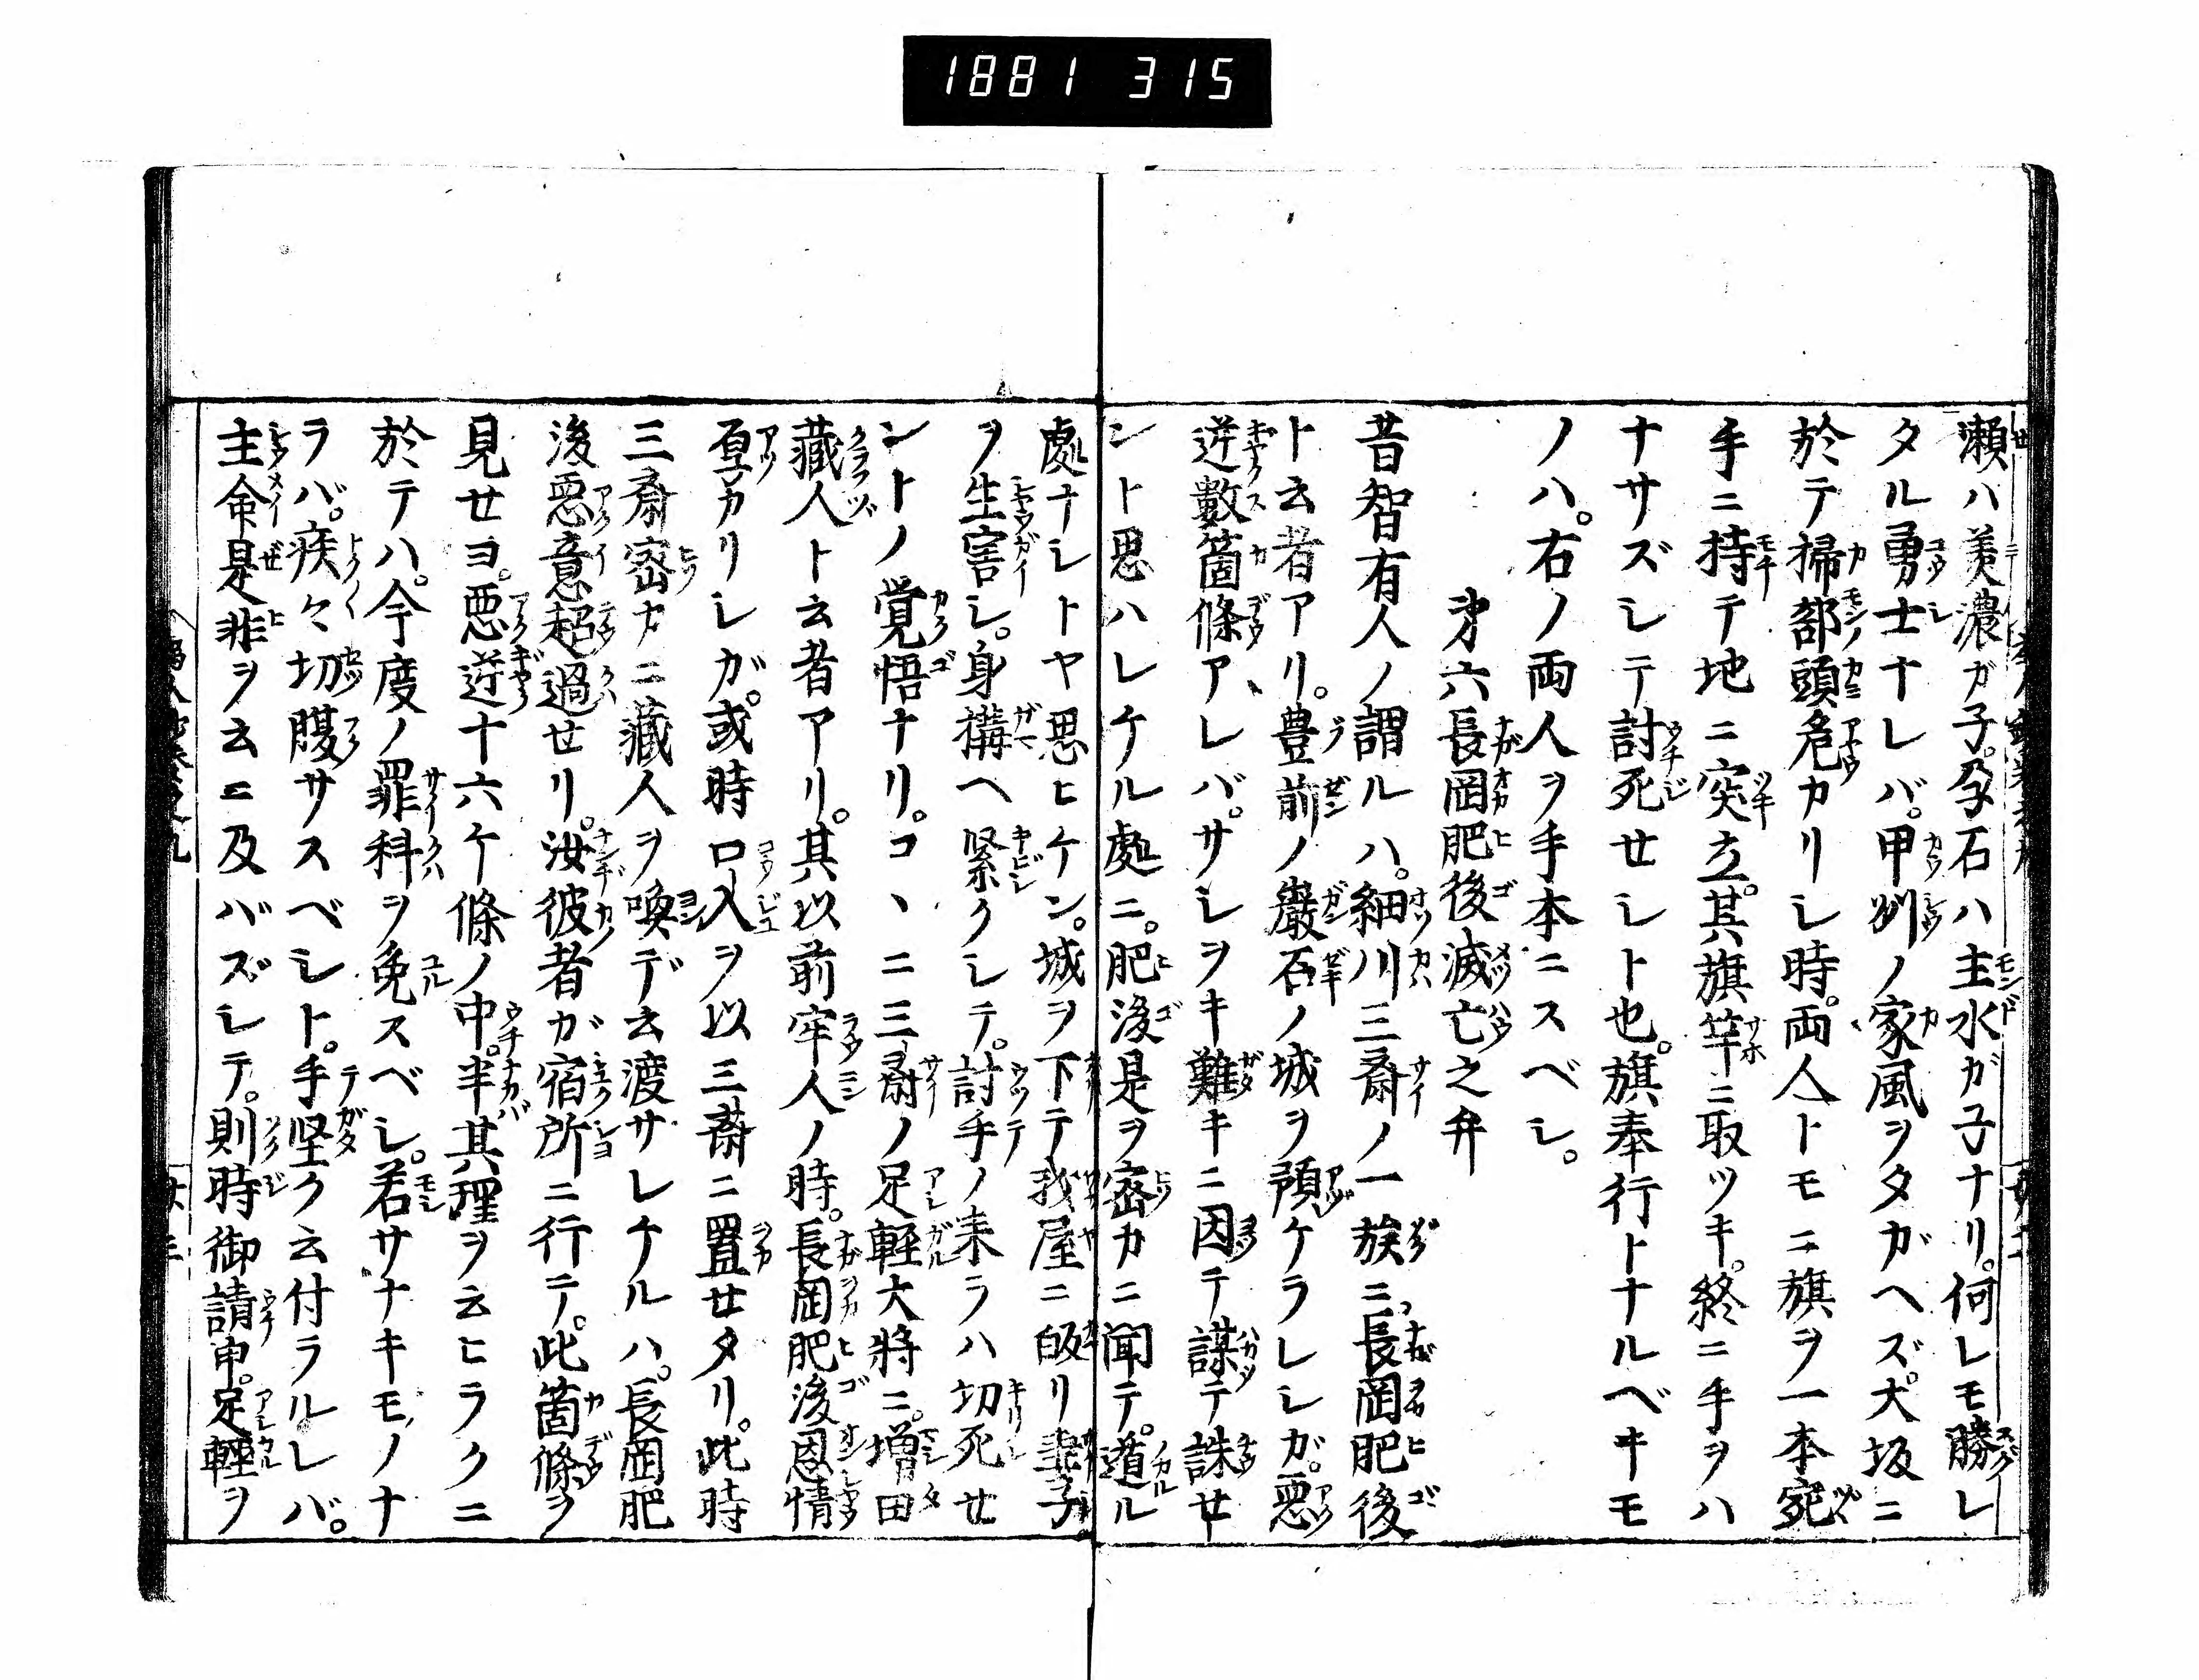 1881 315
瀬ハ美濃ガ子。孕石ハ主水ガ子ナリ。何レモ勝レ
タル勇士ナレバ。甲州ノ家風ヲタガヘズ。大坂ニ
於テ掃部頭危カリシ時。両人トモニ旗ヲ一本宛
手ニ持チ地ニ突立。其旗竿ニ取ツキ。終ニ手ヲハ
ナサズシテ討死セシト也。旗奉行トナルベキモ
ノハ。右ノ両人ヲ手本ニスベシ。
第六長岡肥後滅亡之弁
昔智有人ノ謂ルハ。細川三齋ノ一族ニ。長岡肥後
ト云者アリ。豊前ノ巖石ノ城ヲ預ケラレシガ。悪
逆數箇條アレバ。サレヲキ難キニ因テ謀テ誅セ
ント思ハレケル處ニ。肥後是ヲ密カニ聞テ。遁ル
處ナシトヤ思ヒケン。城ヲ下テ我屋ニ皈リ妻子
ヲ生害シ。身構ヘ緊クシテ。討手ノ来ラハ切死セ
ントノ覚悟ナリ。コヽニ三齋ノ足軽大将ニ。増田
藏人ト云者アリ。其以前牢人ノ時。長岡肥後恩情
厚カリシガ。或時口入ヲ以三齋ニ置セタリ。此時
三齋密ナニ藏人ヲ喚デ云渡サレケルハ。長岡肥
後悪意超過セリ。汝彼者ガ宿所ニ行テ。此箇條ヲ
見セヨ。悪逆十六ケ條ノ中。半其理ヲ云ヒラクニ
於テハ。今度ノ罪科ヲ免スベシ。若サナキモノナ
ラバ。疾々切腹サスベシト。手堅ク云付ラルレバ。
主命是非ヲ云ニ及バズシテ。則時御請申。足軽ヲ